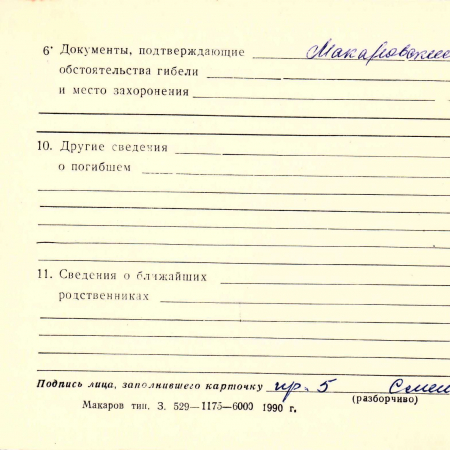 6· Документы, подтверждающие
обстоятельства гибели
и место захоронения
10. Другие сведения
о погибшем
11. Сведения о ближайших
родственниках
Подпись лица, заполнившего карточку пр. 5
(разборчиво)
Макаров тип. З. 529—1175—6000 1990 г.